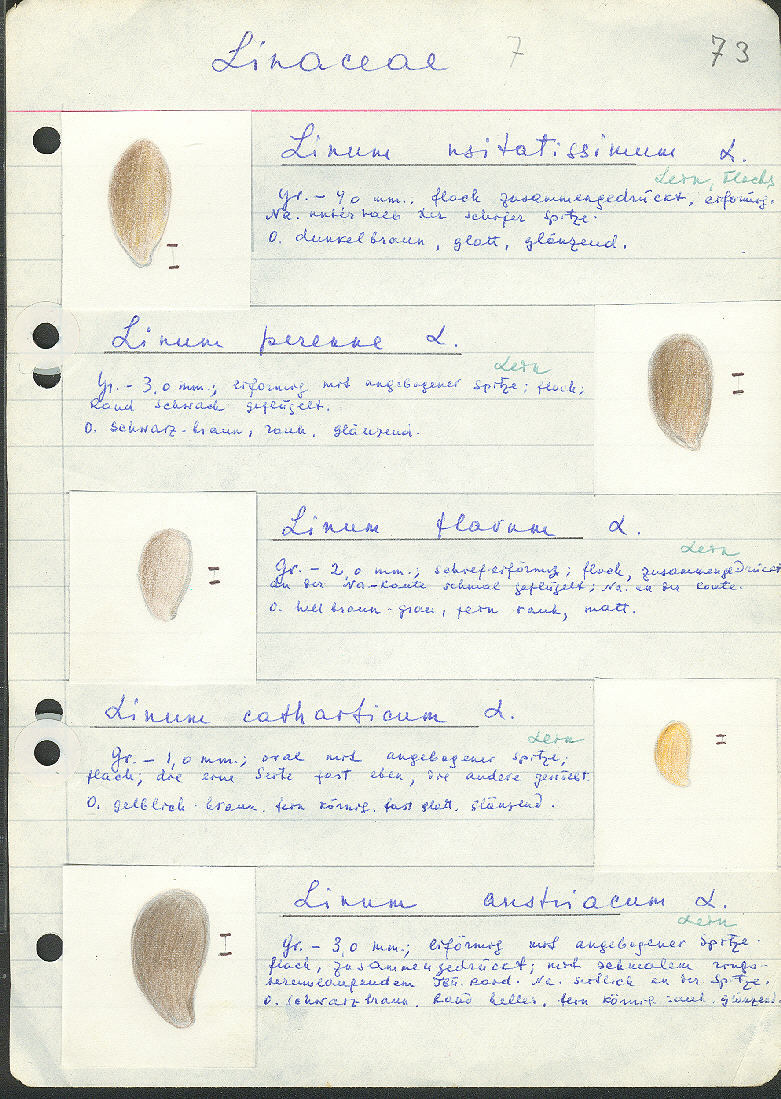 Linaceae 7 73
Linum usitatissimum L.
Lein, Flachs
Gr. - 4,0 mm.; flach zusammengedrückt, eiförmig.
Na. unterhalb der schiefer Spitze.
O. dunkelbraun, glatt, glänzend.
Linum perenne L.
Lein
Gr. - 3,0 mm.; eiförmig mit angebogener Spitze; flach;
Rand schwach geflügelt.
O. schwarz-braun, rauh, glänzend.
Linum flavum L.
Lein
Gr. - 2,0 mm.; schief-eiförmig; flach, zusammengedrückt
an der Na-Kante schmal geflügelt; Na. an der Kante.
O. hellbraun-grau, fein rauh, matt.
Linum catharticum L.
Lein
Gr. - 1,0 mm.; oval mit angebogener Spitze;
flach; die eine Seite fast eben, die andere gewölbt.
O. gelblich-braun. fein körnig. fast glatt. glänzend.
Linum austriacum L.
Lein
Gr. - 3,0 mm.; eiförmig mit angebogener Spitze.
flach, zusammengedrückt; mit schmalem rings-
herumlaufendem Rand. Na. seitlich an der Spitze.
O. schwarzbraun. Rand heller, fein körnig rauh. glänzend.